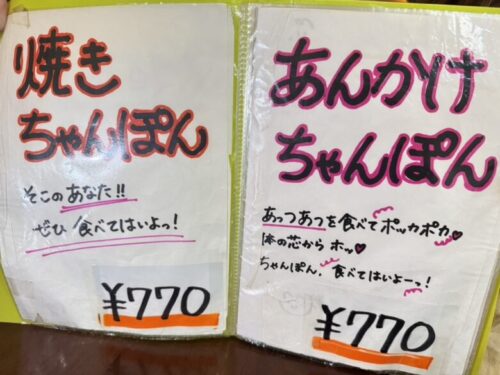 焼き
ちゃんぽん
そこのあなた!!
ぜひ 食べてはいよっ!
¥770
あんかけ
ちゃんぽん
あっつあつを食べてポッカポカ♥
体の芯から ホッ♥
ちゃんぽん、食べてはいよーっ!
¥770